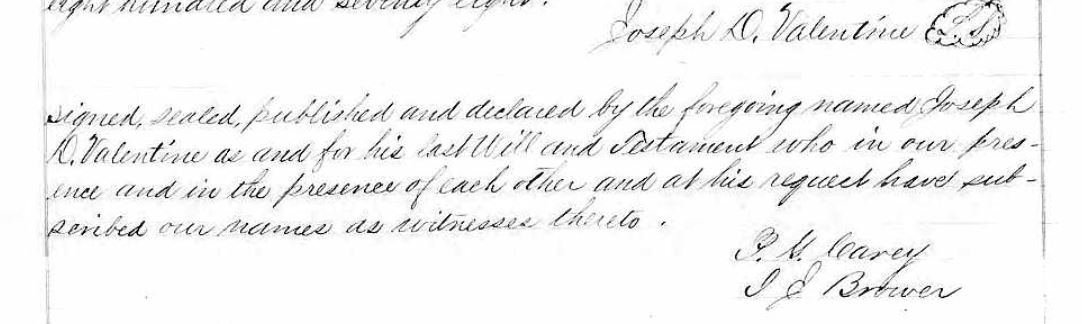 eight hundred and seventy eight.
Joseph D. Valentine L.S.
Signed, sealed, published and declared by the foregoing named Joseph
D. Valentine as and for his last Will and Testament who in our pres-
ence and in the presence of each other and at his request have sub-
scribed our names as witnesses thereto.
P. G. Carey
I J Brower